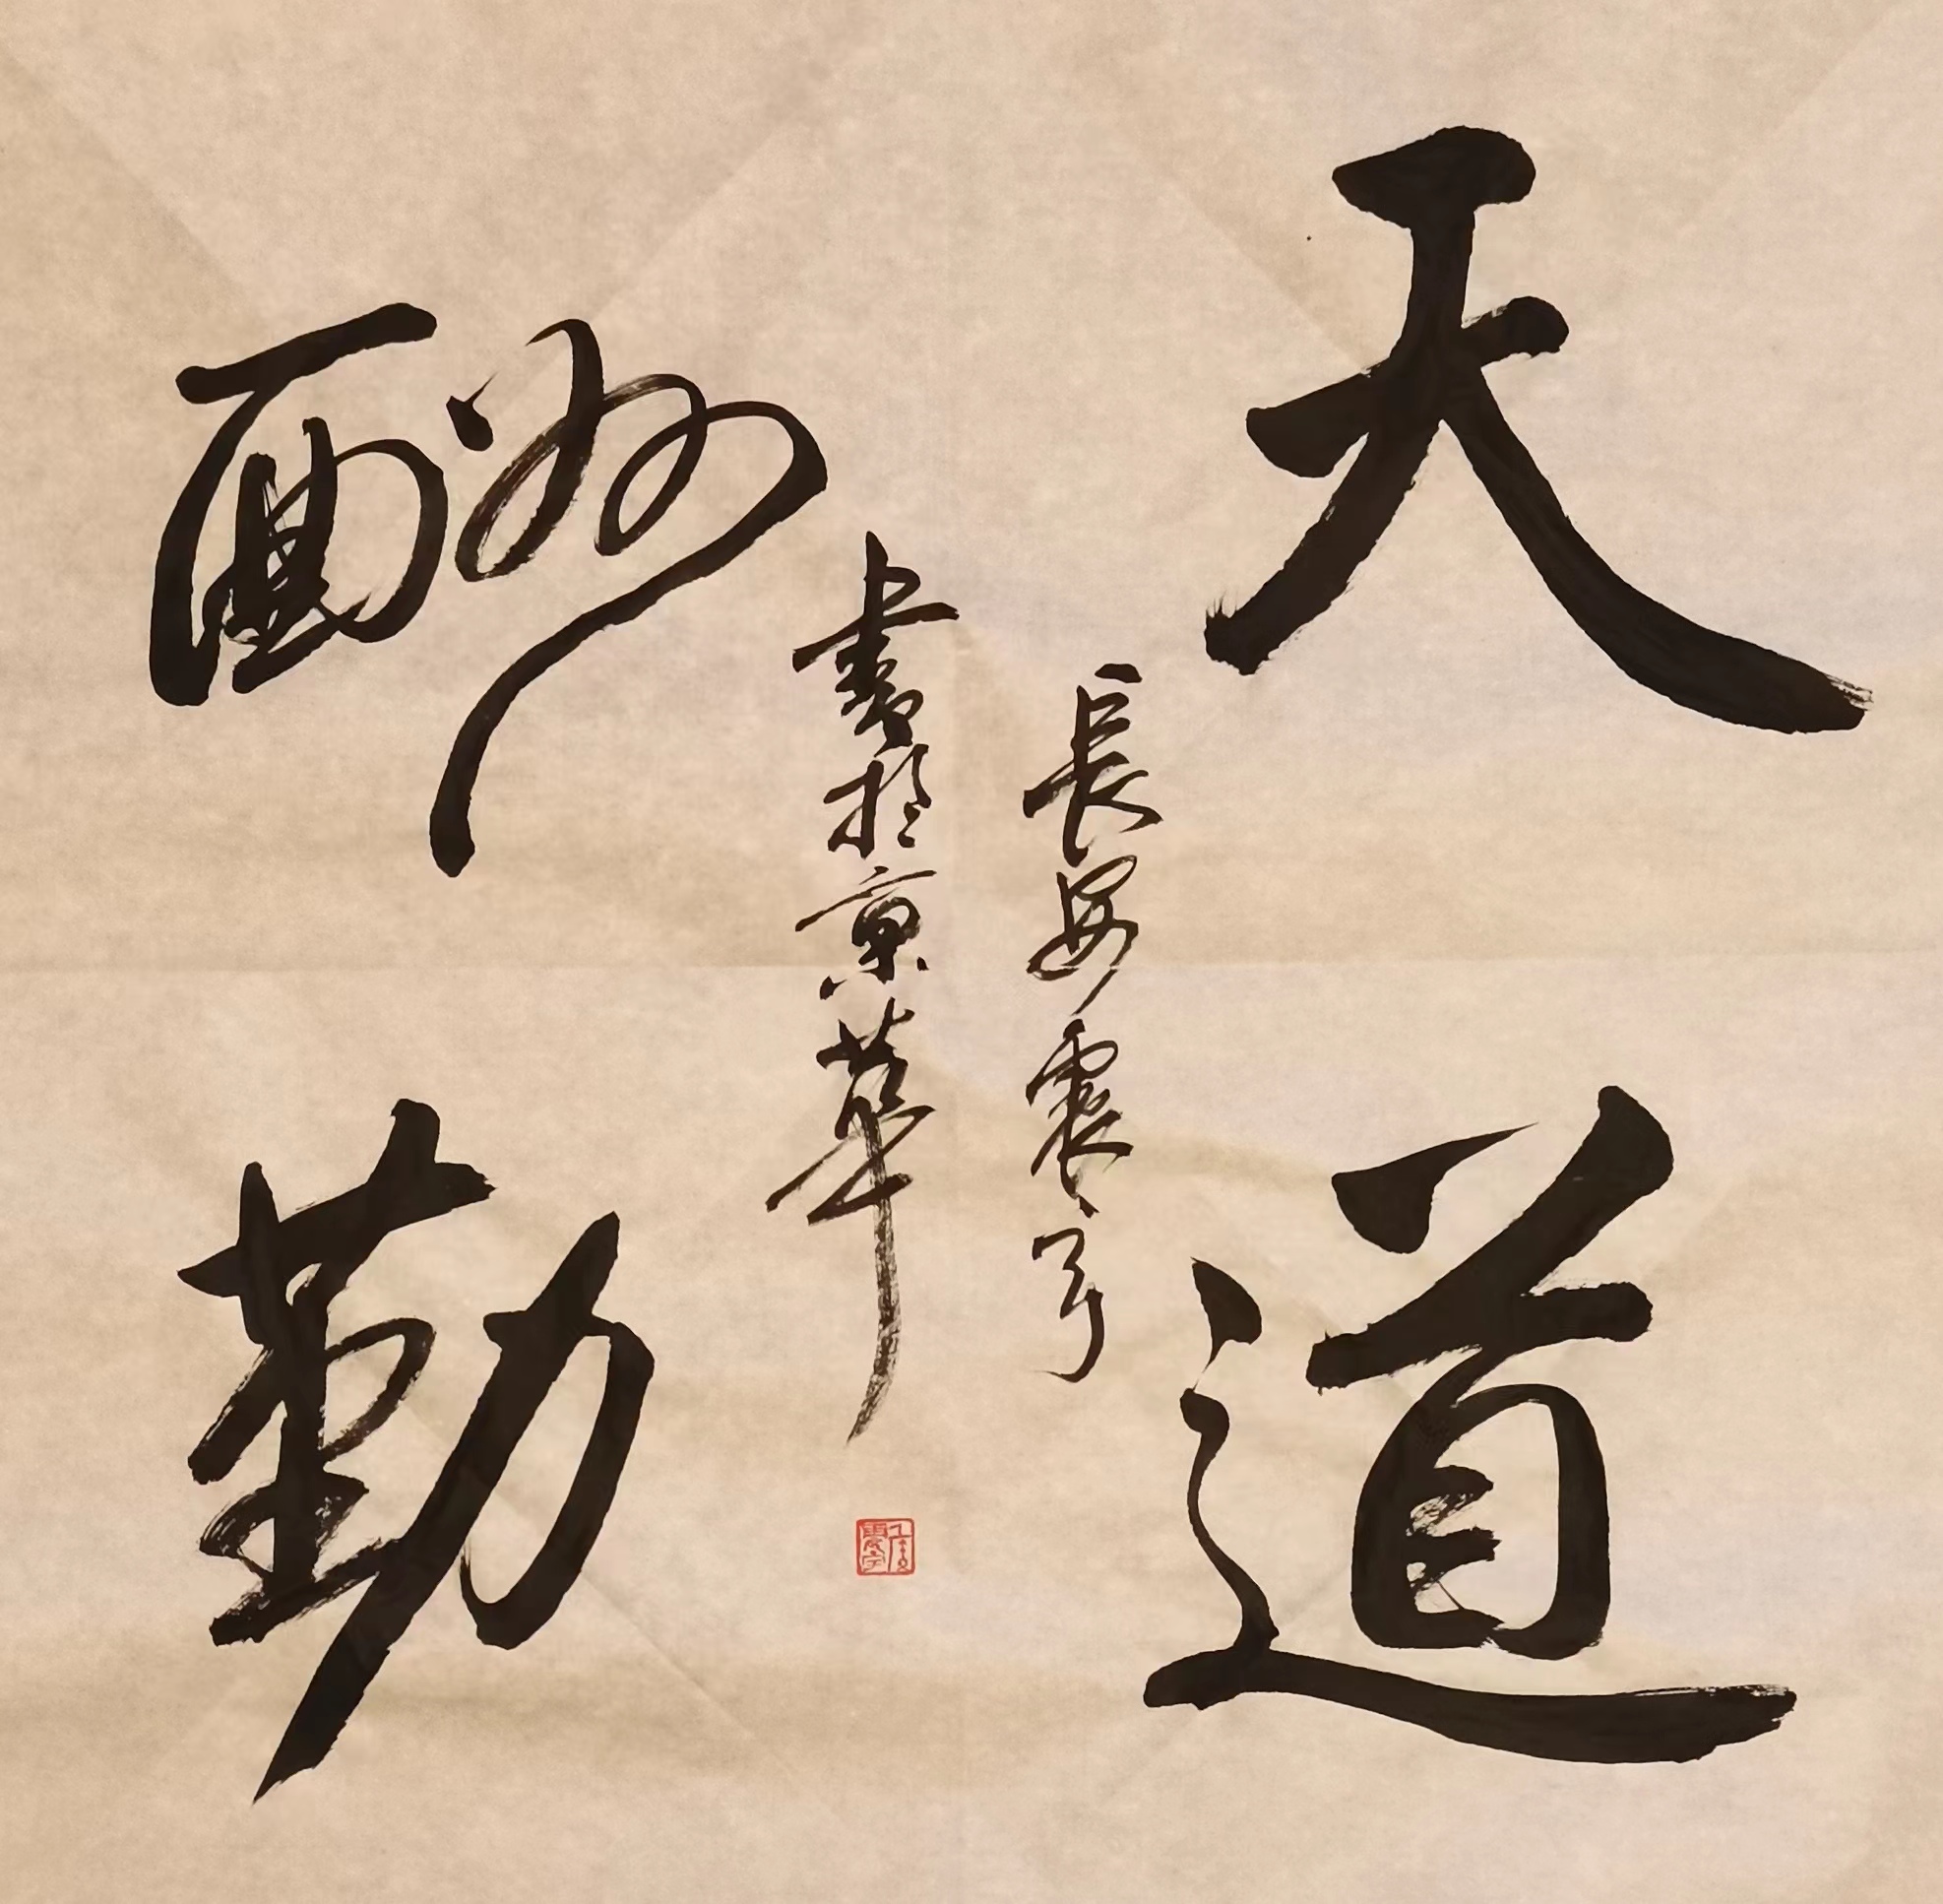 天道
酬勤
長安震宇
書於京華